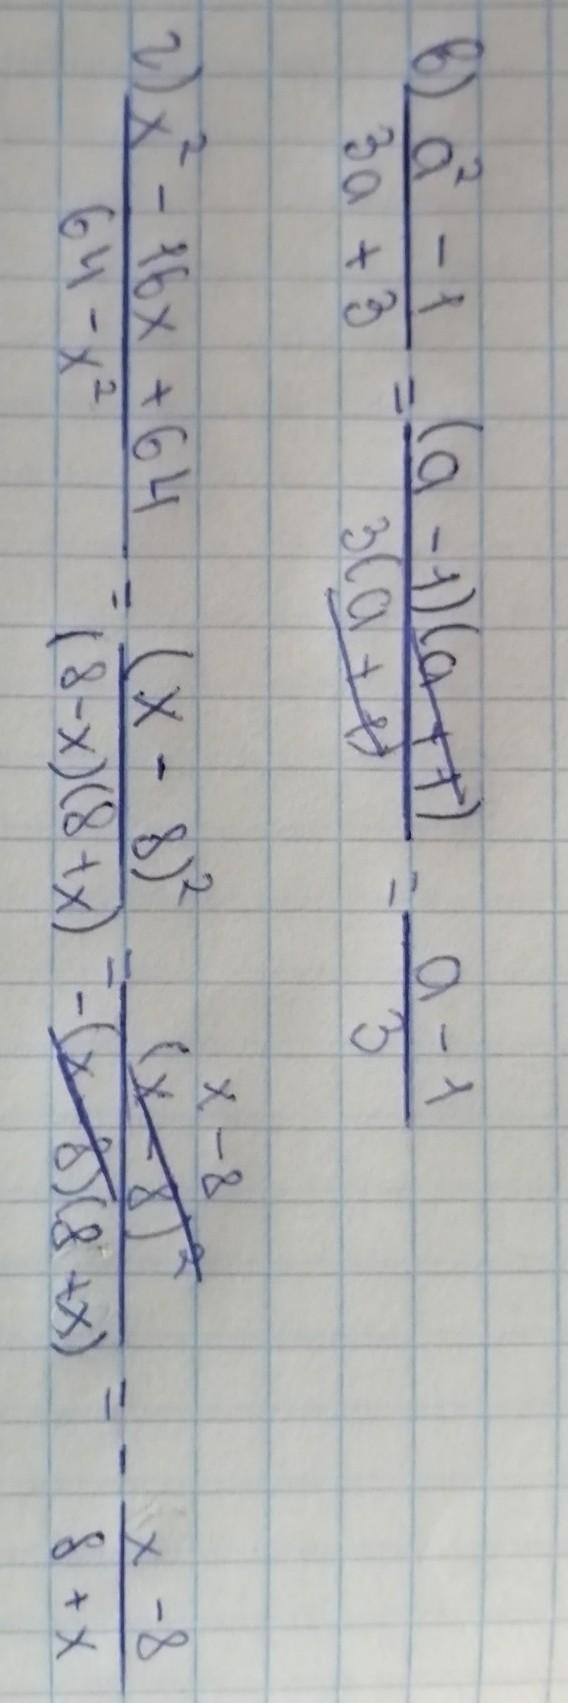 в) a² - 1 / 3a + 3 = (a - 1)(a + 1) / 3(a + 1) = a - 1 / 3
г) x² - 16x + 64 / 64 - x² = (x - 8)² / (8 - x)(8 + x) = (x - 8)² x - 8 / -(x - 8)(8 + x) = - x - 8 / 8 + x